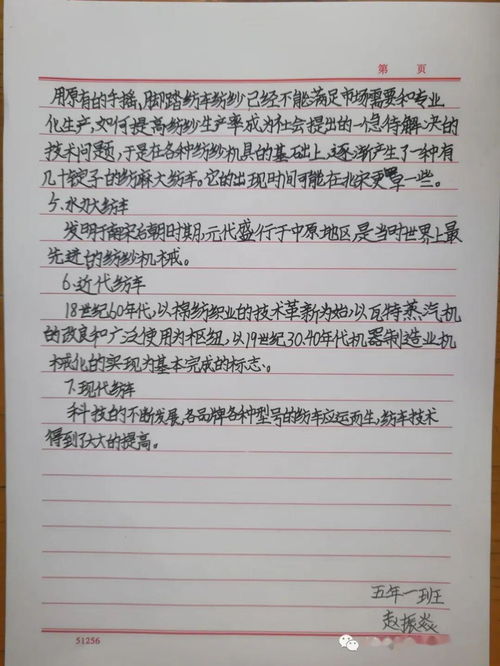 第 页
用原有的手摇,脚踏纺车纺纱已经不能满足市场需要和专业
化生产,如何提高纺纱生产率成为社会提出的一急待解决的
技术问题,于是在各种纺纱机具的基础上,逐渐产生了一种有
几十锭子的纺麻大纺车。它的出现时间可能在北宋更早一些。
5.水力大纺车
发明于南宋后期时期,元代盛行于中原地区,是当时世界上最
先进的纺纱机械。
6.近代纺车
18世纪60年代,以棉纺织业的技术革新为始,以瓦特蒸汽机
的改良和广泛使用为枢纽,以19世纪30.40年代机器制造业机
械化的实现为基本完成的标志。
7.现代纺车
科技的不断发展,各品牌各种型号的纺车应运而生,纺车技术
得到了大大的提高。
五年一班
赵振焱
51256